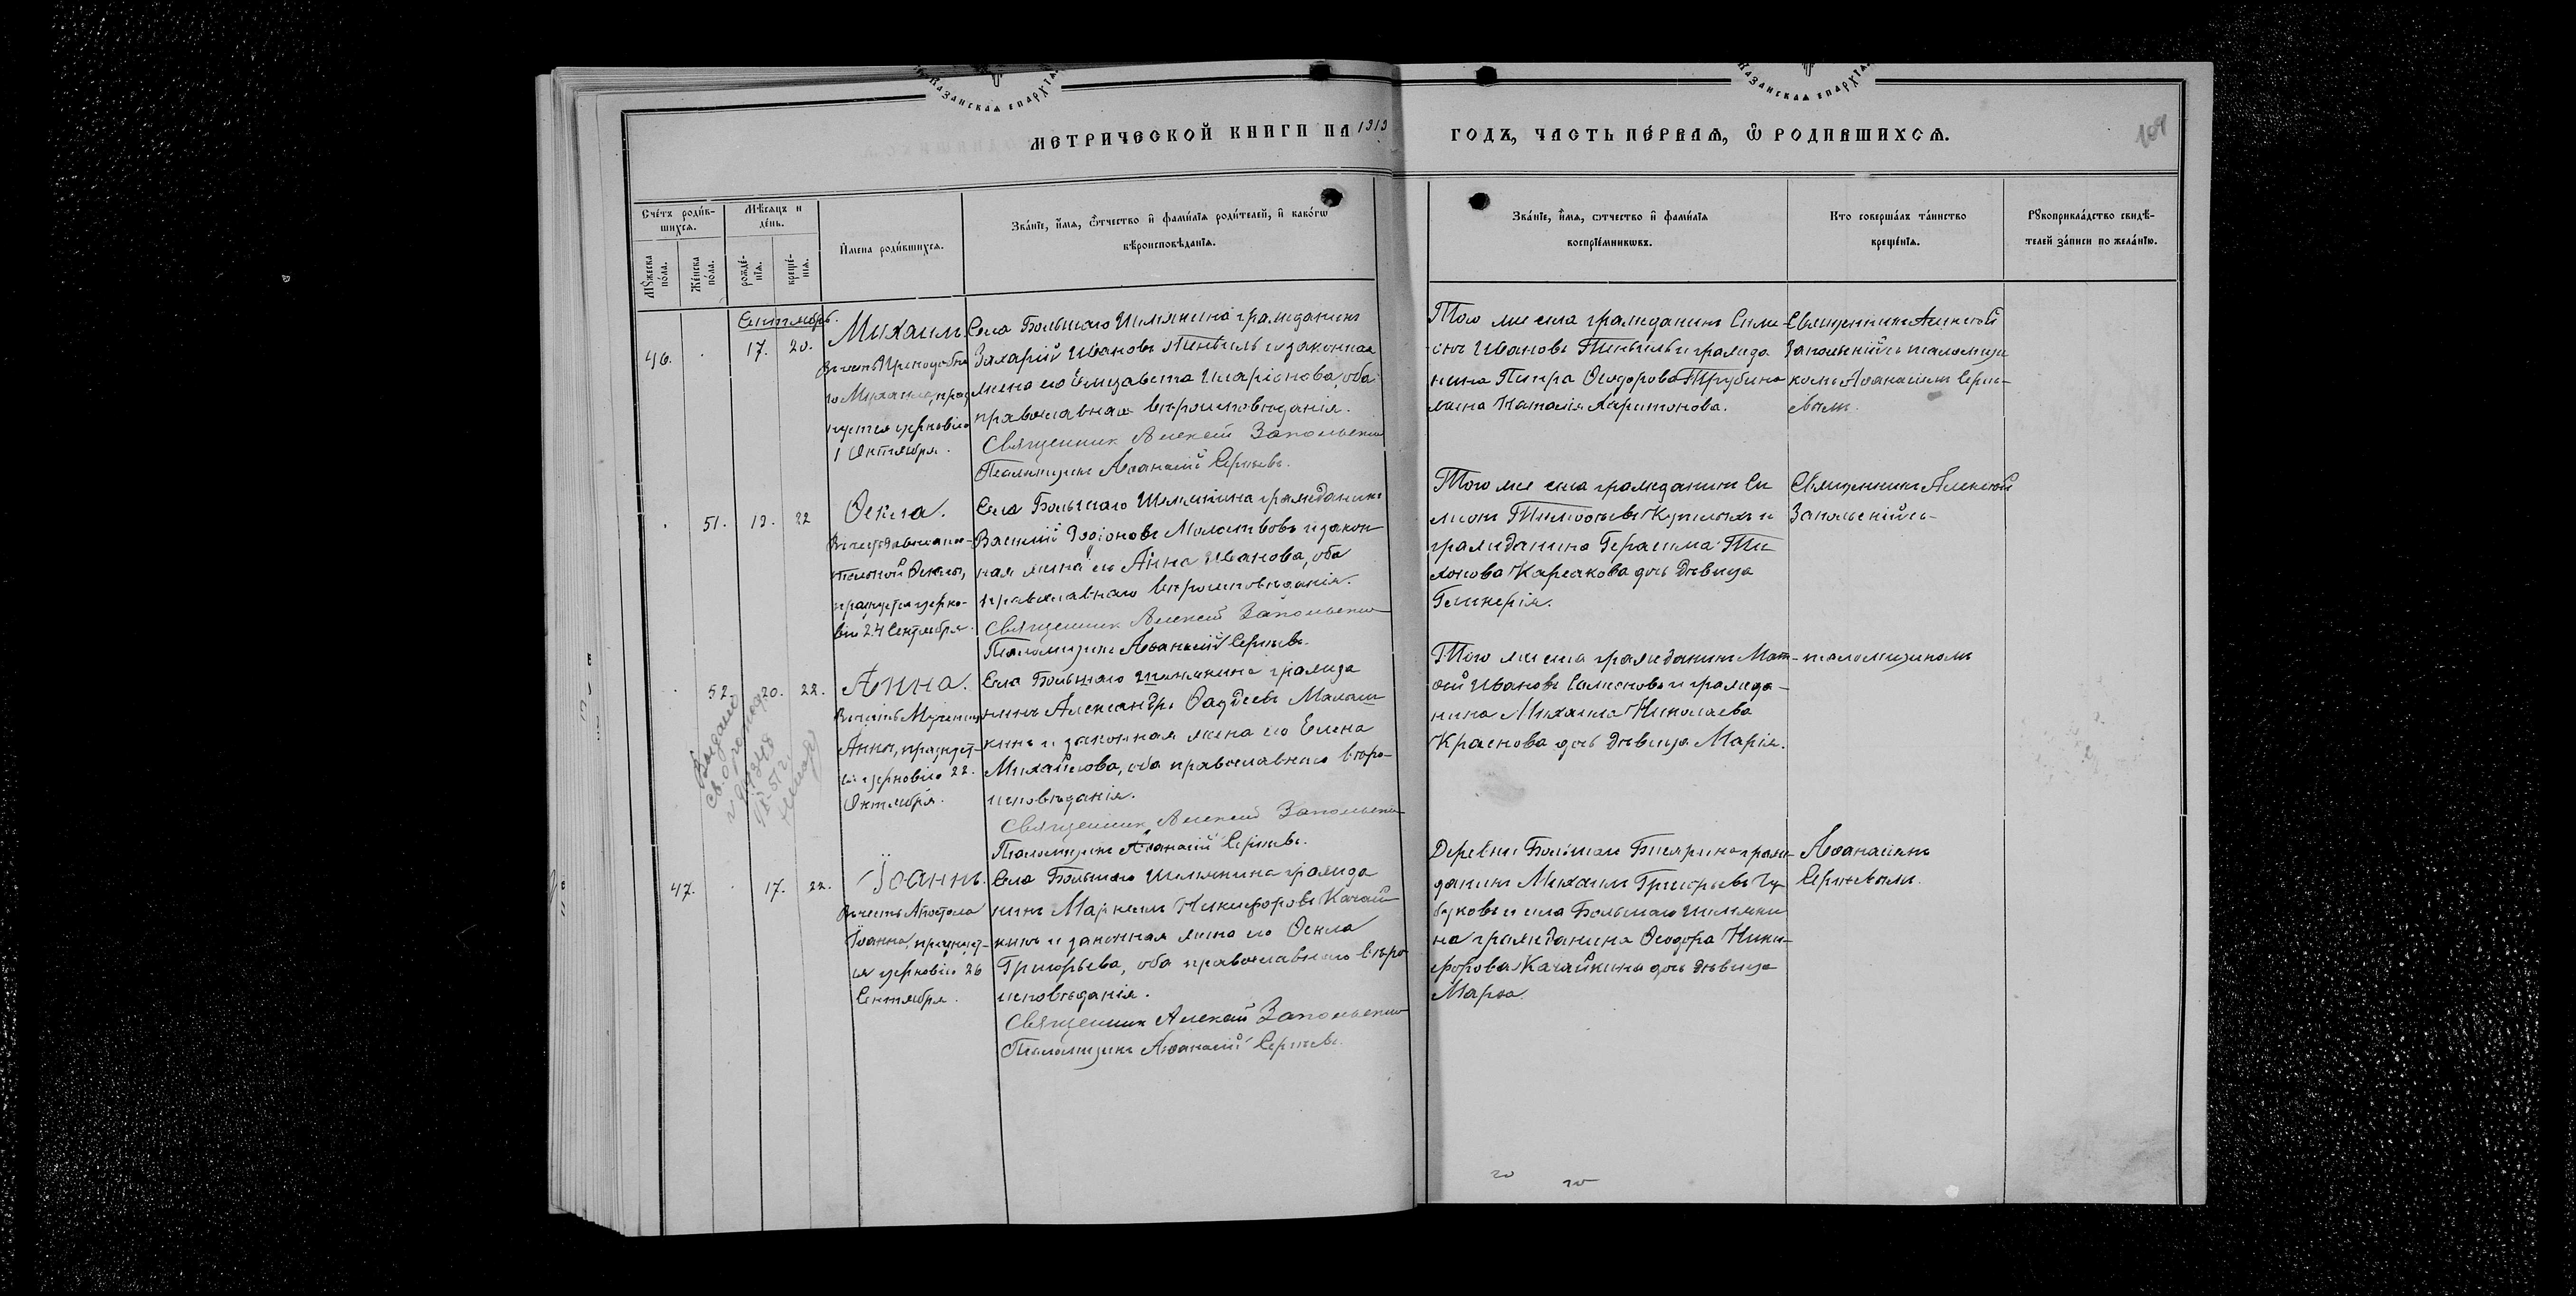 КАЗАНСКАЯ ЕПАРХІЯ
КАЗАНСКАЯ ЕПАРХІЯ
МЕТРИЧЕСКОЙ КНИГИ НА 1919
ГОДЪ, ЧАСТЬ ПЕ́РВАЯ, Ѡ РОДИВШИХСЯ.
109
Сче́тъ роди́в-
шихся.
Мѣ́сяцъ и
де́нь.
Мꙋ́жеска
по́ла.
Же́нска
по́ла.
рожде́-
нїя.
креще́-
нїя.
И҆мена роди́вшихся.
Зва́нїе, и҆́мя, ѻ҆́тчество и҆ фами́лїя роди́телей, и҆ како́гѡ
вѣроисповѣ́данїя.
Зва́нїе, и҆́мя, ѻ҆́тчество и҆ фами́лїя
воспрїе́мникѡвъ.
Кто соверша́лъ та́инство
креще́нїя.
Рꙋкоприкла́дство свидѣ́-
телей за́писи по жела́нїю.
Сентябрь.
46.
17. 20.
Михаилъ
Въ честь Преподобна
го Михаила, празд
нуется церковію
1 Октября.
Села Большаго Шемякина гражданинъ
Захарій Ивановъ и законная
жена его Елизавета Иларіонова, оба
православнаго вѣроисповѣданія.
Священник Алексей Запольский
Псаломщикъ Аѳанасій Сергѣевъ.
Того же села гражданинъ Симе-
онъ Ивановъ и гражда
нина Петра Ѳеодорова Трубина
жена Наталія Харитонова.
Священникъ Алексѣй
Запольскій съ псаломщи
комъ Аѳанасіемъ Сергѣ-
евымъ.
51. 19. 22
Ѳекла.
Ѳеклы,
празднуется церко-
вію 24 Сентября.
Села Большаго Шемякина гражданинъ
Василій Родіоновъ Молоствовъ и закон
ная жена его Анна Иванова, оба
православнаго вѣроисповѣданія.
Священник Алексей Запольский
Псаломщикъ Аѳанасій Сергѣевъ.
Того же села гражданинъ Си
меонъ Тимоѳеевъ и
гражданина Герасима Ти
хонова Карсакова дочь дѣвица
Гликерія.
Священникъ Алексѣй
Запольскій съ
52. 20. 22.
Выдано
Анна.
Въ честь Мученицы
Анны, празднует-
ся церковію 22.
Октября.
Села Большаго Шемякина гражда
нинъ Александръ Ѳаддеевъ Малаш
кинъ и законная жена его Елена
Михайлова, оба православнаго вѣро-
исповѣданія.
Священник Алексей Запольский
Псаломщикъ Аѳанасій Сергѣевъ.
Того же села гражданинъ Мат-
ѳей Ивановъ Самсоновъ и гражда-
нина Михаила Николаева
Краснова дочь дѣвица Марія.
псаломщикомъ
47. 17. 22.
Іоаннъ.
Въ честь Апостола
Іоанна, празднует-
ся церковію 26
Сентября.
Села Большаго Шемякина гражда
нинъ Маркелъ Никифоровъ Качай
кинъ и законная жена его Ѳекла
Григорьева, оба православнаго вѣро
исповѣданія.
Священник Алексей Запольский
Псаломщикъ Аѳанасій Сергѣевъ.
Деревни Большаго Бисярина граж-
данинъ Михаилъ Григорьевъ Чу-
буковъ и села Большаго Шемяки
на гражданина Ѳеодора Ники-
форова Качайкина дочь дѣвица
Марѳа.
Аѳанасіемъ
Сергѣевымъ.